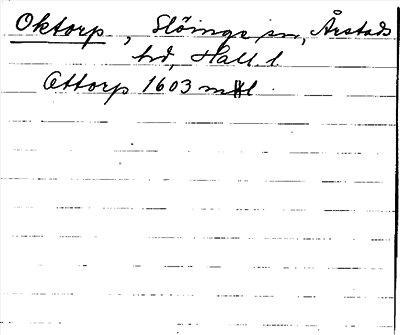 Oktorp, Slöinge sn, Årstads
hd, Hall. l
Attorp 1603 mtl